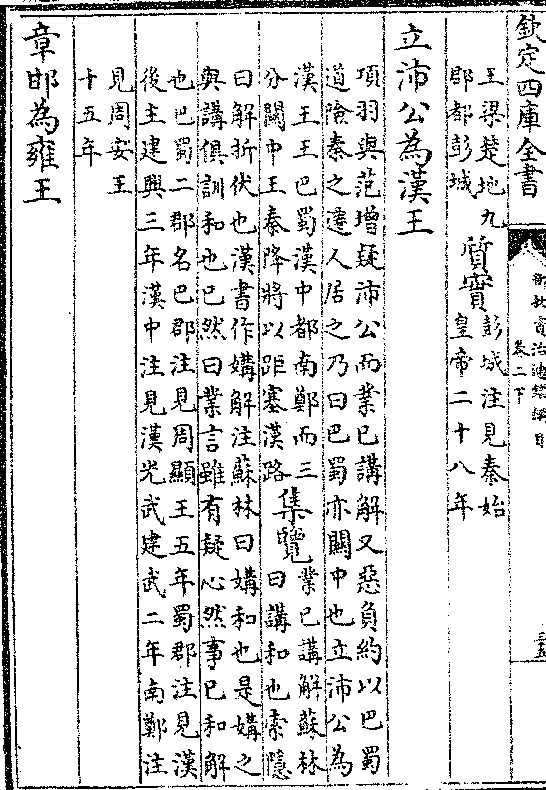 欽定四庫全書
御批資治通鑑綱目
卷二下
王梁楚地九
郡都彭城
質實
彭城注見秦始
皇帝二十八年
立沛公為漢王
項羽與范增疑沛公而業已講解又惡負約以巴蜀
道險秦之遷人居之乃曰巴蜀亦關中也立沛公為
漢王王巴蜀漢中都南鄭而三
分關中王秦降將以距塞漢路
集覽
業已講解蘇林
曰講和也索隱
曰解折伏也漢書作媾解注蘇林曰媾和也是媾之
與講俱訓和也已然曰業言雖有疑心然事已和解
也巴蜀二郡名巴郡注見周顯王五年蜀郡注見漢
後主建興三年漢中注見漢光武建武二年南鄭注
見周安王
十五年
章邯為雍王